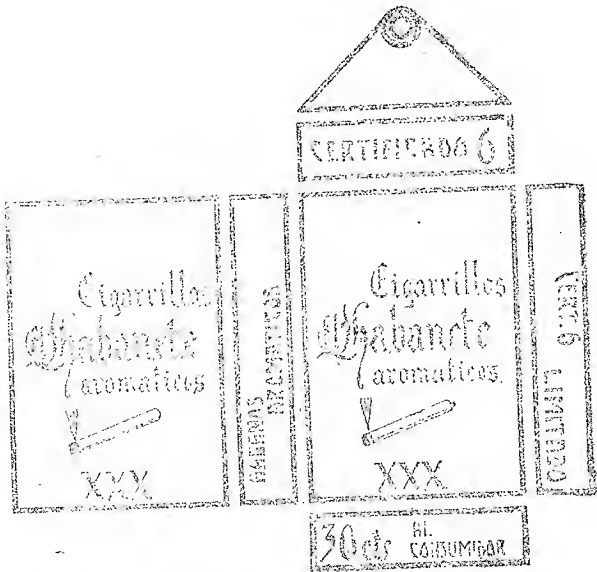 CERTIFICADO 6
Cigarrillos
Habanete
aromaticos
XXX
HABANAS
AROMATICOS
Cigarrillos
Habanete
aromaticos.
XXX
CERT. 6 LIMITADO
30 cts AL
CONSUMIDOR